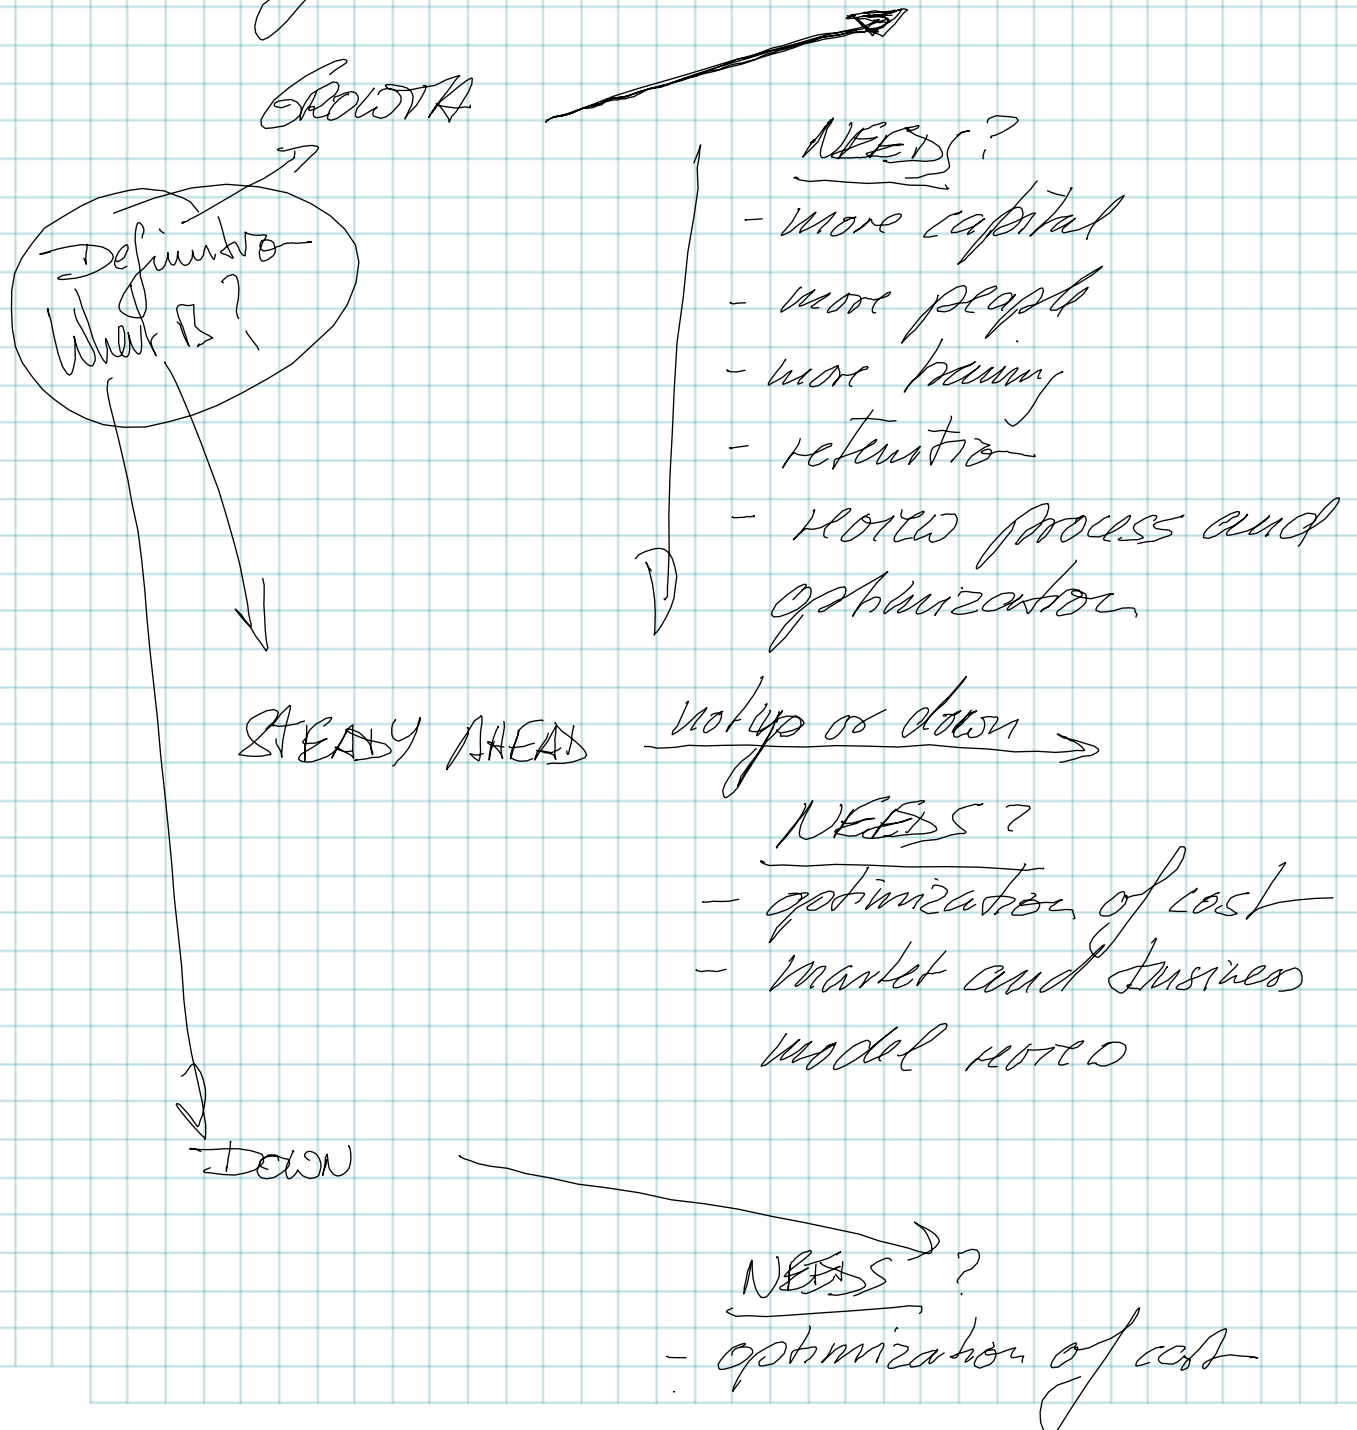 GROWTH
NEEDS?
- more capital
Definition
What is?
- more people
- more training
- retention
- review process and
optimization
STEADY AHEAD not up or down
NEEDS?
- optimization of cost
- market and business
model review
DOWN
NEEDS?
- optimization of cost